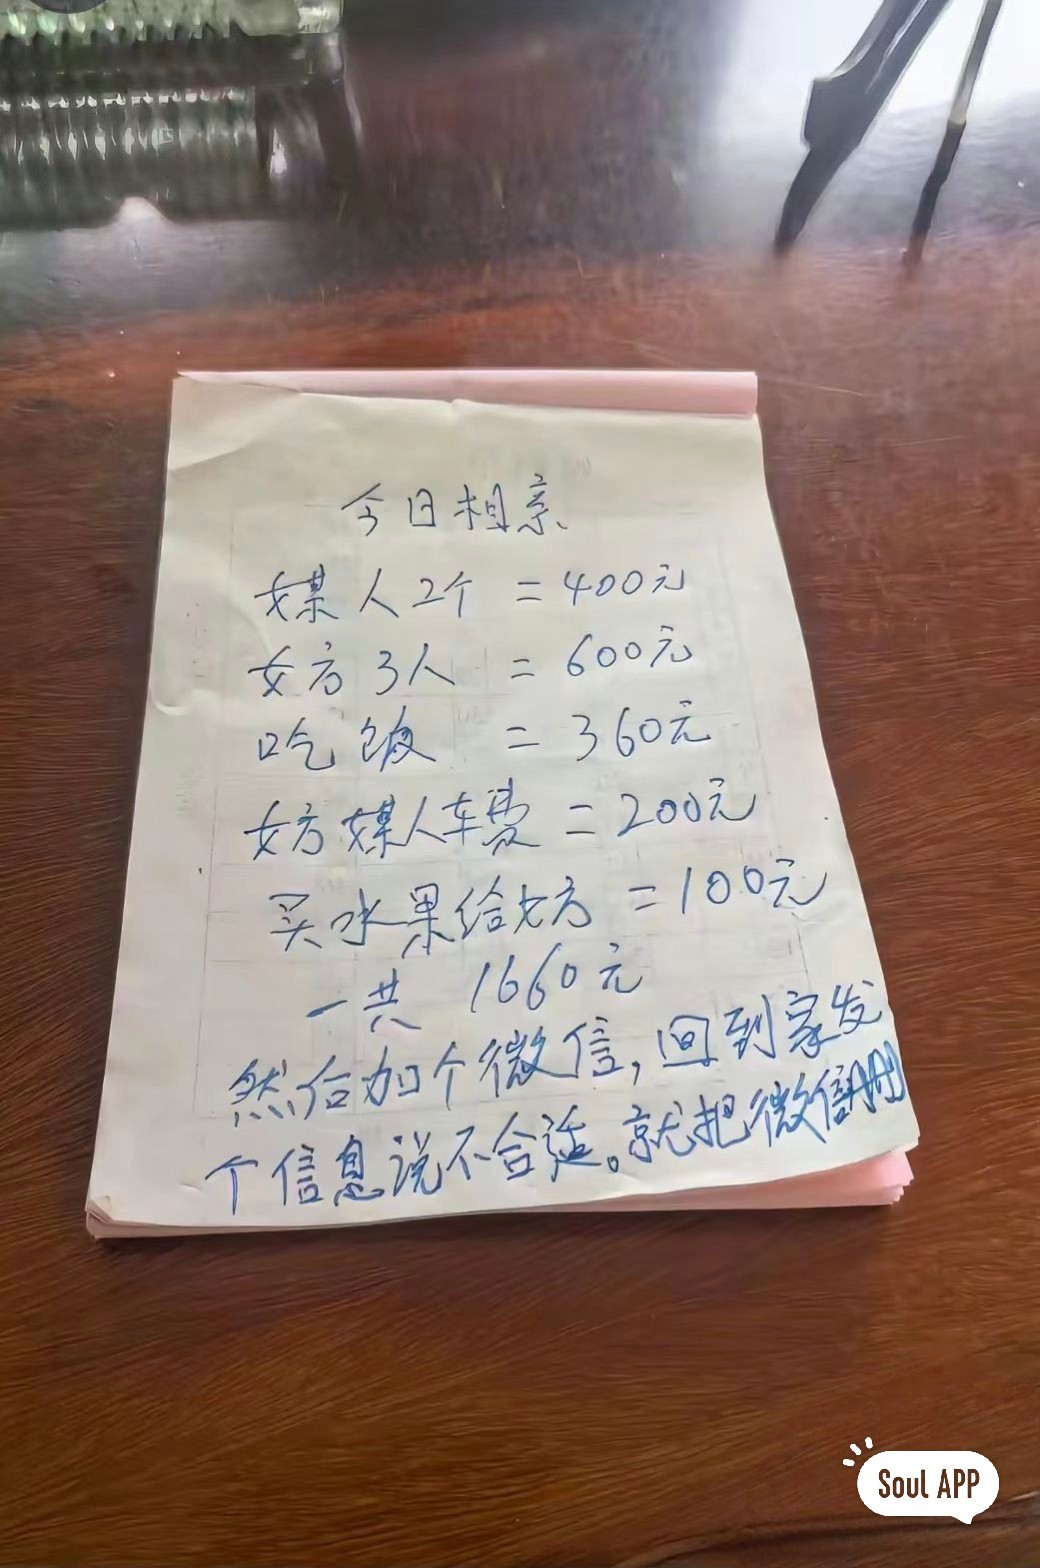 今日相亲、
媒人2个 = 400元
女方3人 = 600元
吃饭 = 360元
女方媒人车费 = 200元
买水果给女方 = 100元
一共 1660元
然后加个微信,回到家发
个信息说不合适。就把微信删
Soul APP